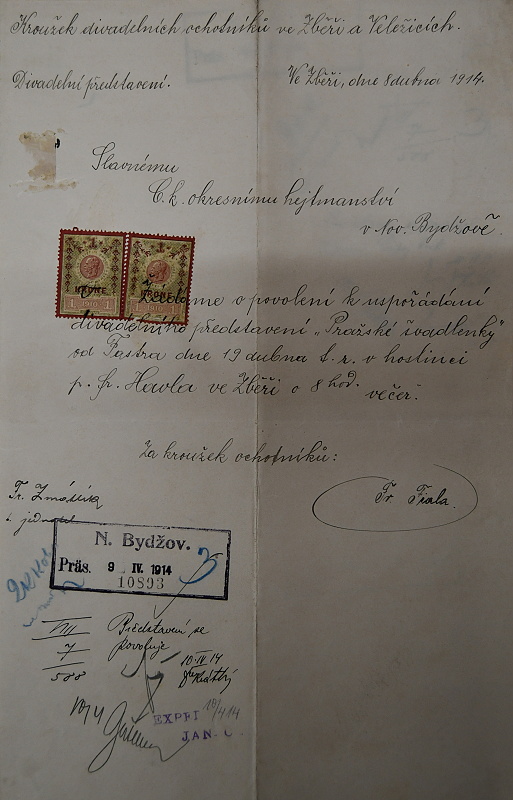 Kroužek divadelních ochotníků ve Zběři a Veležicích.
Divadelní představení.
Ve Zběři, dne 8 dubna 1914.
Slavnému
C. k. okresnímu hejtmanství
v Nov. Bydžově.
1 1910 1
KRONE
Žádáme o povolení k uspořádání
divadelního představení „Pražské švadlenky"
od Fastra dne 19 dubna t. r. v hostinci
p. Fr. Havla ve Zběři o 8 hod. večer.
Za kroužek ochotníků:
Fr.
t. č. jednatel
Fr. Fiala.
N. Bydžov.
Präs. 9 IV. 1914
10893
3
2 K kol
VIII
7
588
Představení se
povoluje
10 IV 14
10/4
EXPEI 10/4 14
JAN